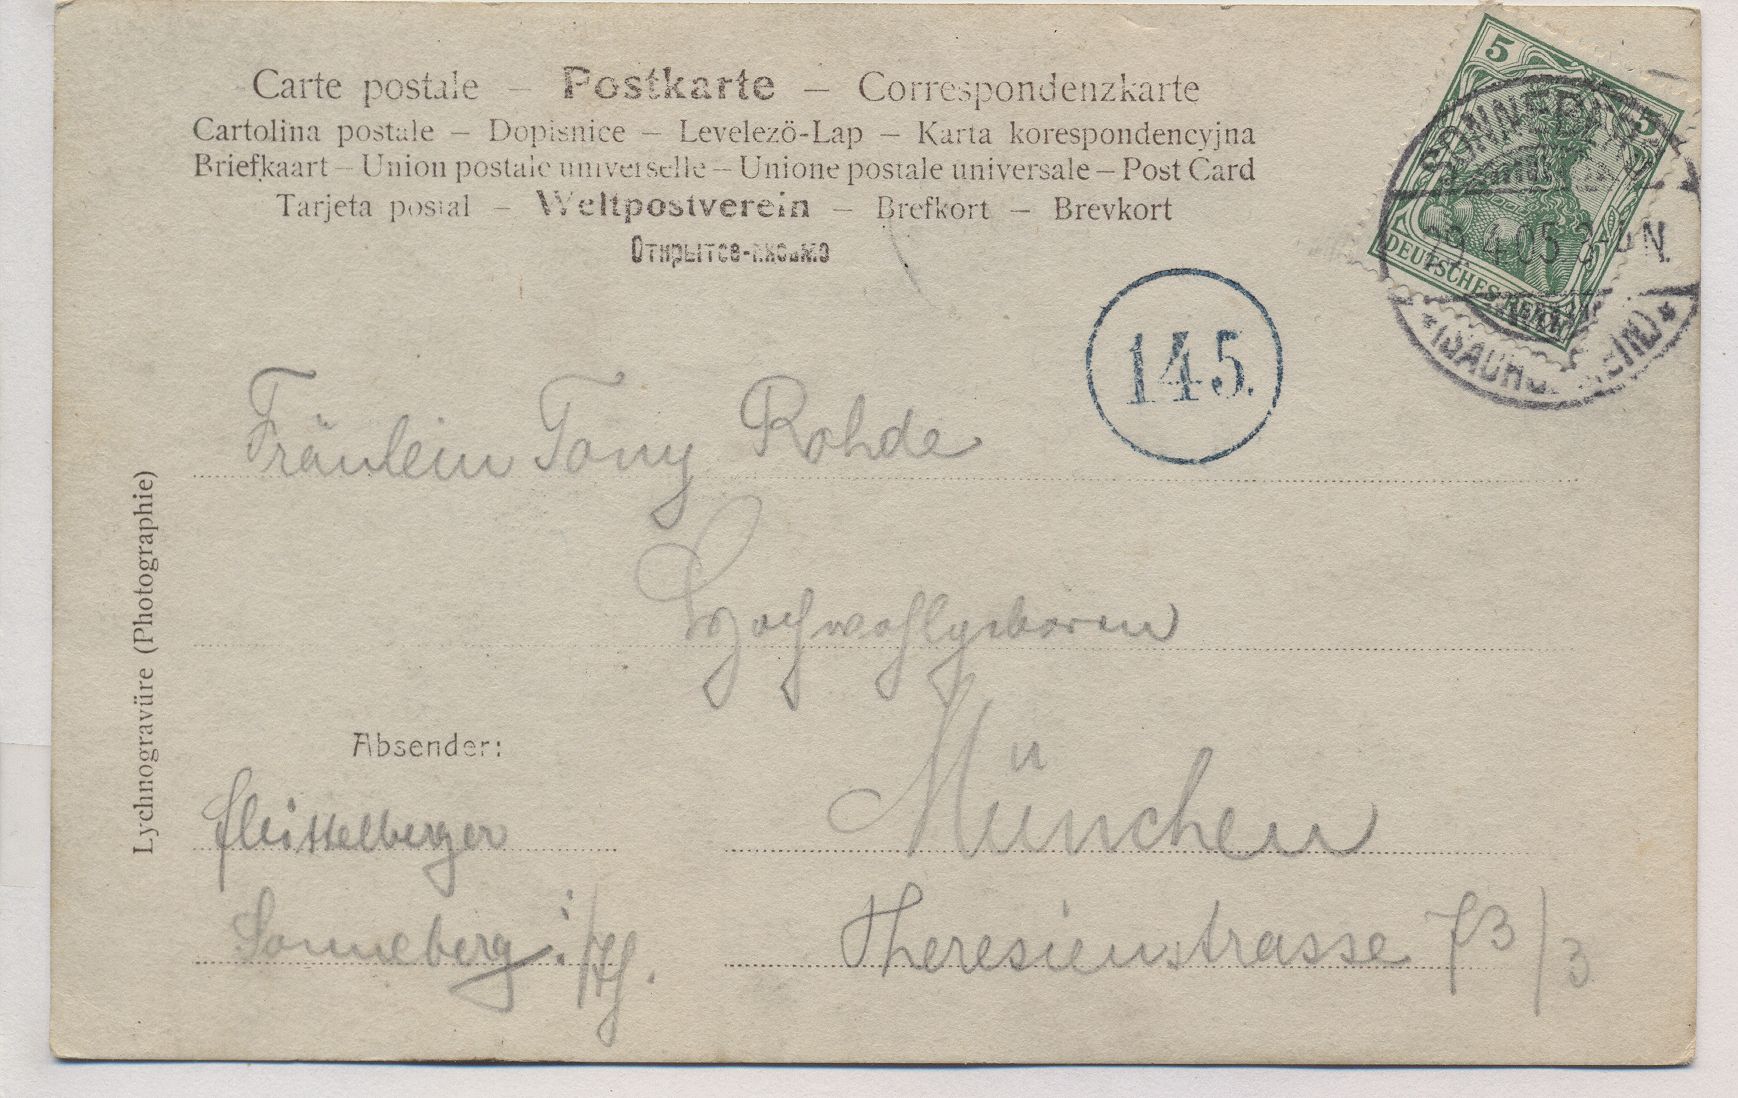 Carte postale – Postkarte – Correspondenzkarte
Cartolina postale – Dopisnice – Levelező-Lap – Karta korespondencyjna
Briefkaart – Union postale universelle – Unione postale universale – Post Card
Tarjeta postal – Weltpostverein – Brefkort – Brevkort
Открытое-письмо
5 5
DEUTSCHES REICH
SONNEBERG
4.05 N.
145.
Fräulein Tony Rohde
Hochwohlgeboren
München
Theresienstrasse 73/3
Absender:
Sonneberg i/Th.
Lychnogravüre (Photographie)